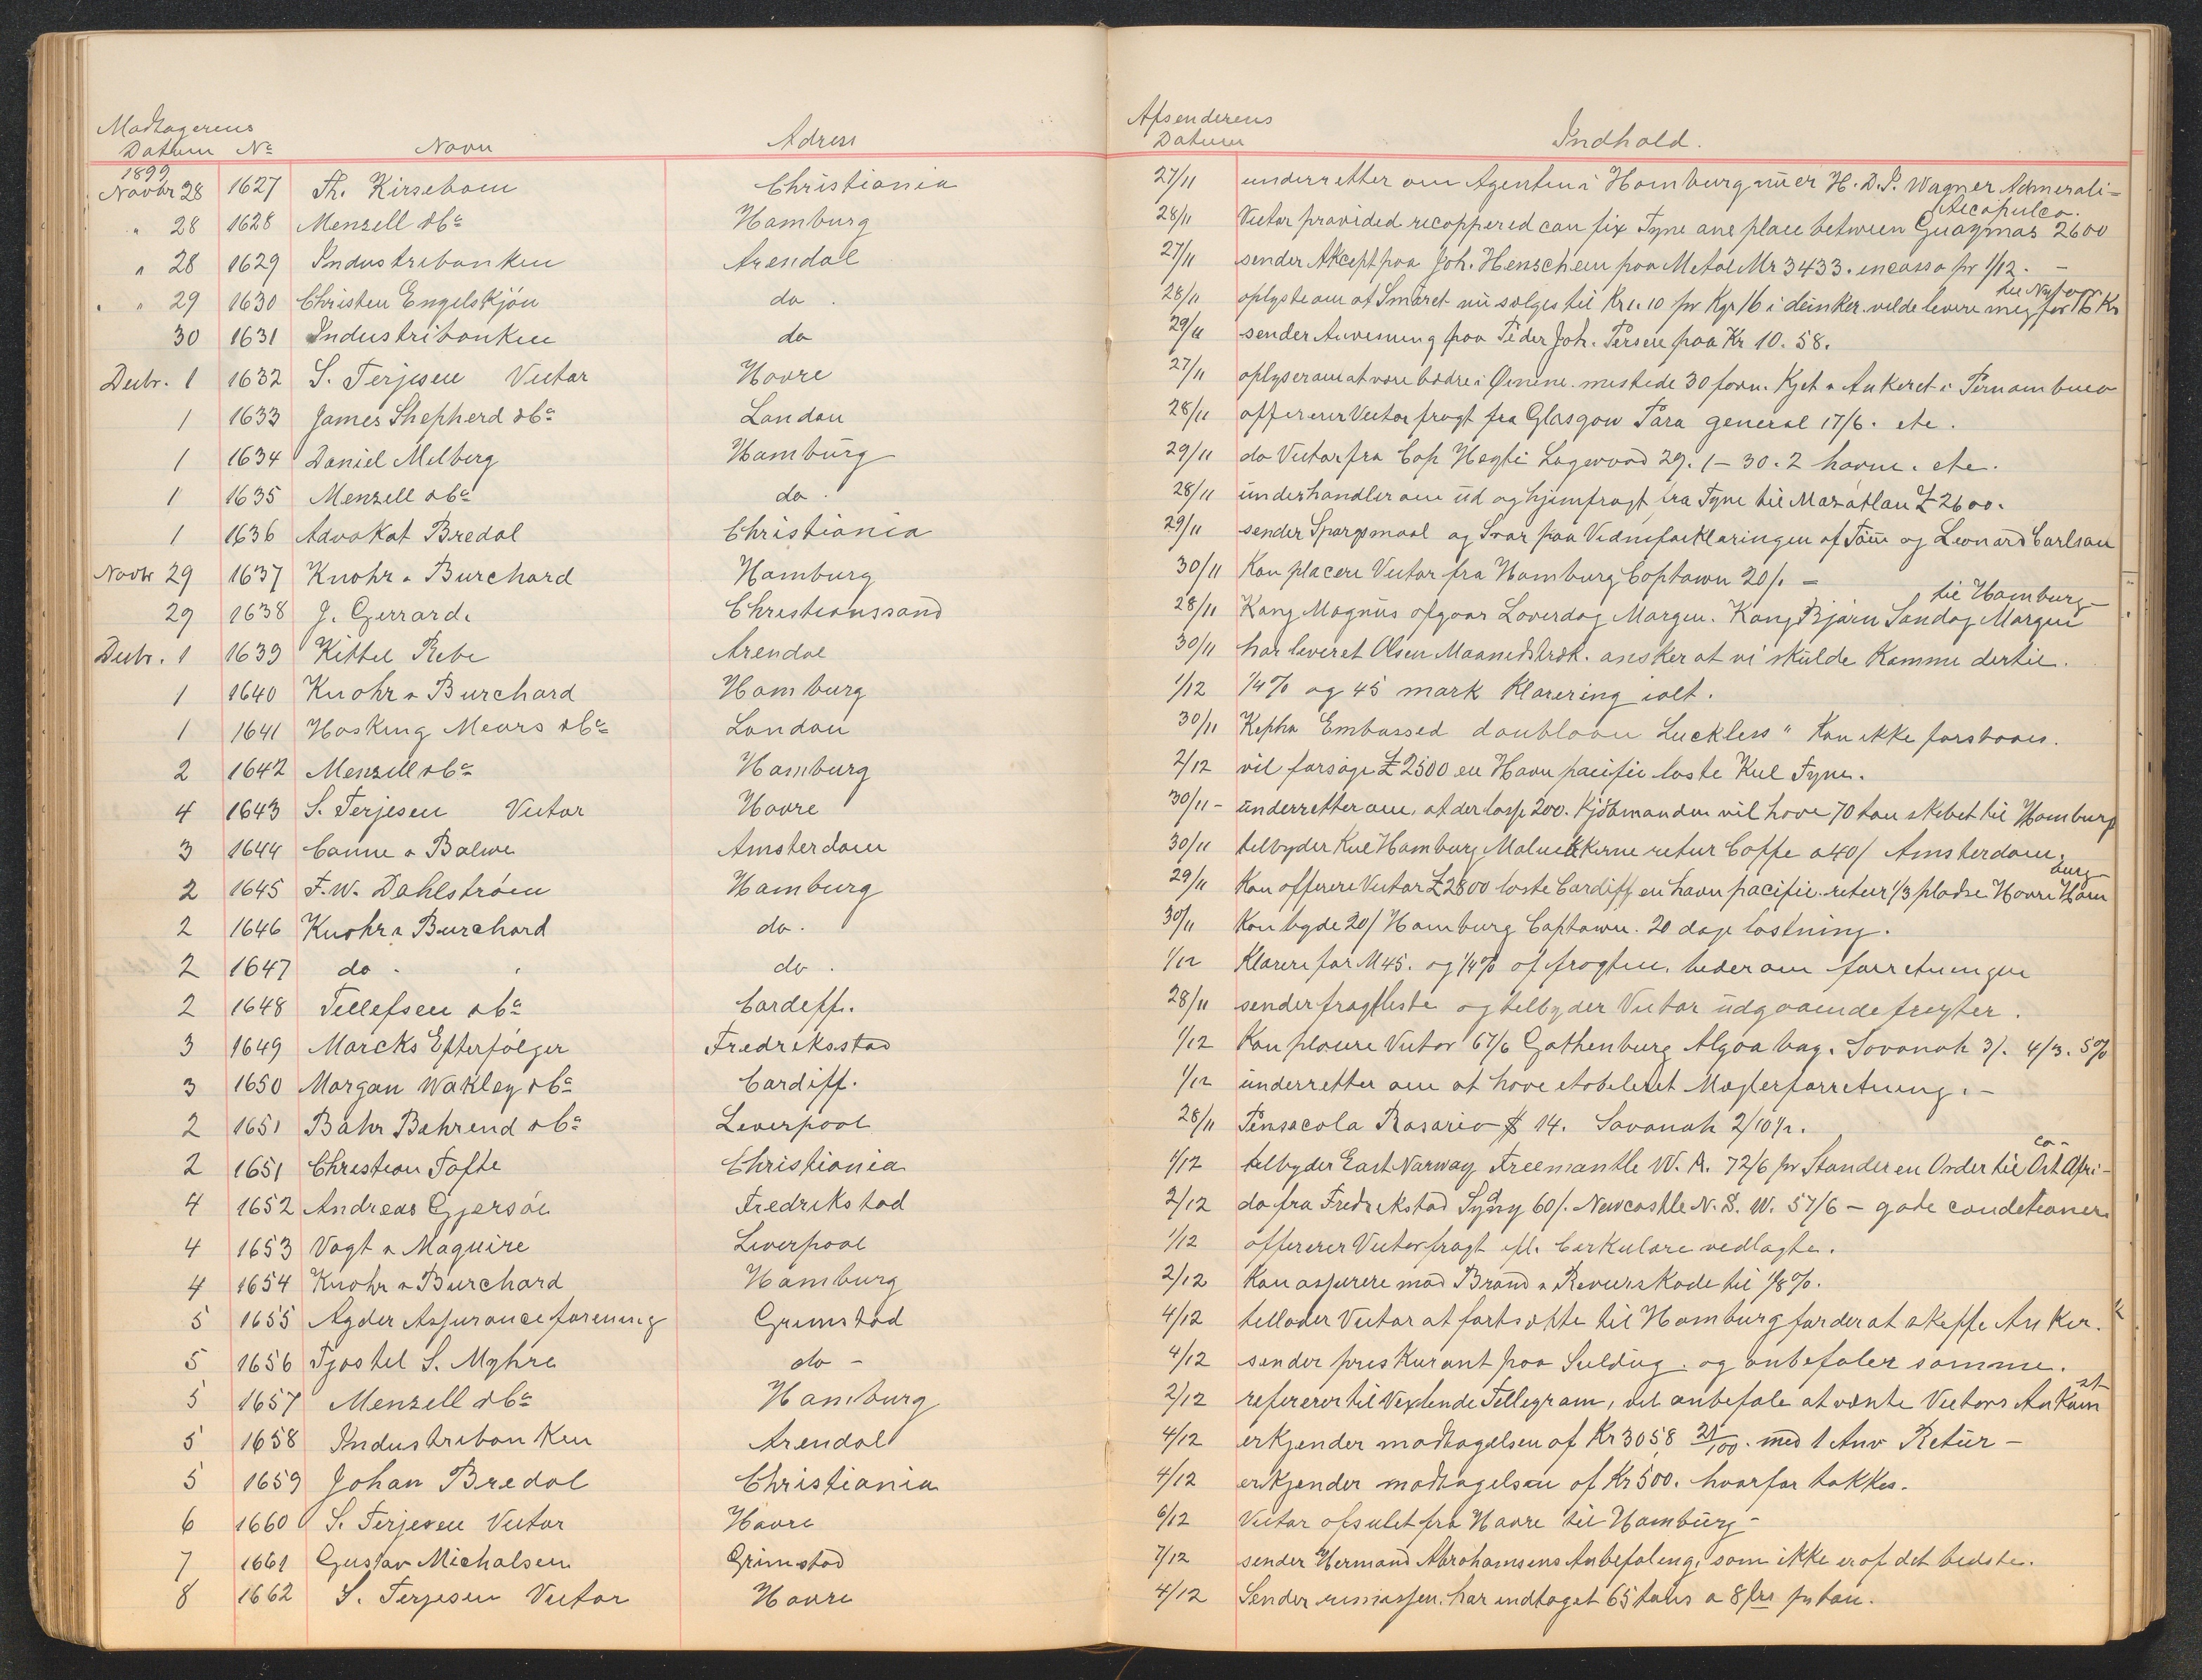 Modtagerens Datum No Navn Adress Afsenderens Datum Indhold.
1899
Novbr 28 1627 Th. Kirsebom Christiania 27/11 underretter om Agenten i Hamburg nu er H. D. P. Wagner Admerali-
" 28 1628 Menzell & Co Hamburg 28/11 Victor provided recoppered can fix Tyne one place between Guaymas Acapulco. 2600
" 28 1629 Industribanken Arendal 27/11 sender Akcept paa Joh. Henschen paa Metal Mr 3433. incasso pr 1/12. -
" 29 1630 Christen Engelskjøn do. 28/11 oplyste om at Smøret nu sælges til Kr 1.10 pr Kgr 16 i dunker vilde levere mig til Nytaar for 16 Kr
30 1631 Industribanken do 29/11 sender Anvisning paa Peder Joh. Persen paa Kr 10.58.
Decbr. 1 1632 S. Terjesen Victor Havre 27/11 oplyser om at være bedre i Øinene. mistede 30 favn. Kjet & Ankeret i Pernambuco
1 1633 James Shepherd & Co London 28/11 offererer Victor fragt fra Glasgow Para general 17/6. etc.
1 1634 Daniel Melberg Hamburg 29/11 do Victor fra Cap Hayti Logwood 29. 1 - 30. 2 havne. etc.
1 1635 Menzell & Co do. 28/11 underhandler om ud og hjemfragt fra Tyne til Mazatlan £ 2600.
1 1636 Advokat Bredal Christiania 29/11 sender Spørgsmaal og Svar paa Vidneforklaringen af Tom og Leonard Carlsen
Novbr 29 1637 Knohr & Burchard Hamburg 30/11 Kan placere Victor fra Hamburg Captown 20/. -
29 1638 J. Gerrard. Christianssand 28/11 Kong Magnus afgaar Løverdag Morgen. Kong Bjørn Søndag Morgen til Hamburg -
Decbr. 1 1639 Kittel Rebe Arendal 30/11 har leveret Olsen Maanedstræk. ønsker at vi skulde komme dertil.
1 1640 Knohr & Burchard Hamburg 1/12 1/4 % og 45 mark Klarering ialt.
1 1641 Hosking Mears & Co London 30/11 Kepha Embossed doubloon Luckless " Kan ikke forstaaes.
2 1642 Menzell & Co Hamburg 2/12 vil forsøge £ 2500 en Havn pacific loste Kul Tyne.
4 1643 S. Terjesen Victor Havre 30/11 - underretter om, at der losse 200. Kjøbmanden vil have 70 ton skibet til Hamburg
3 1644 Canne & Balwe Amsterdam 30/11 tilbyder Kul Hamburg Molukkerne retur Caffe a 40/ Amsterdam.
2 1645 F. W. Dahlstrøm Hamburg 29/11 Kan offerere Victor £ 2800 loste Cardiff en havn pacific. retur 1/3 pladse Havre Hamburg
2 1646 Knohr & Burchard do. 30/11 Kan byde 20/ Hamburg Captown. 20 dage lostning.
2 1647 do. do. 1/12 Klarere for M 45. og 1/4 % af fragten. beder om forretningen
2 1648 Tellefsen & Co Cardiff. 28/11 sender fragtliste og tilbyder Victor udgaaende fragter.
3 1649 Marcks Efterfølger Fredriksstad 1/12 Kan placere Victor 67/6 Gothenburg Algoa bay. Savanah 3/. 4/3. 5%
3 1650 Morgan Wakley & Co Cardiff. 1/12 underretter om at have etableret Mæglerforretning. -
2 1651 Bahr Behrend & Co Liverpool 28/11 Pensacola Rosario $ 14. Savanah 2/10 1/2.
2 1651 Christian Tofte Christiania 1/12 tilbyder East Norway Freemantle W. A. 72/6 pr Standeren Order til Øst Africa -
4 1652 Andreas Gjersøe Fredrikstad 2/12 do fra Fredrikstad Sydny 60/. Newcastle N. S. W. 57/6 - gode conditioner.
4 1653 Vogt & Maguire Liverpool 1/12 offererer Victor fragt efl. Cirkulære vedlagte.
4 1654 Knohr & Burchard Hamburg 2/12 Kan assurere mod Brand & Reverskade til 1/8 %.
5 1655 Agder Assuranceforening Grimstad 4/12 tillader Victor at fortsætte til Hamburg før der at skeffe Anker.
5 1656 Tjøstel S. Myhre do - 4/12 sender priskurant paa Seildug. og anbefaler samme.
5 1657 Menzell & Co Hamburg 2/12 refererer til Vexlende Tellegram, vil anbefale at vente Victors Ankomst
5 1658 Industribanken Arendal 4/12 erkjender modtagelsen af Kr 3058 21/100. med 1 Anv Retur -
5 1659 Johan Bredal Christiania 4/12 erkjender modtagelsen af Kr 500. hvorfor takkes.
6 1660 S. Terjesen Victor Havre 6/12 Victor afseilet fra Havre til Hamburg -
7 1661 Gustav Michalsen Grimstad 7/12 sender Hermand Abrahamsens Anbefaling, som ikke er af det bedste.
8 1662 S. Terjesen Victor Havre 4/12 Sender har indtaget 65 tons a 8 frs pr ton.